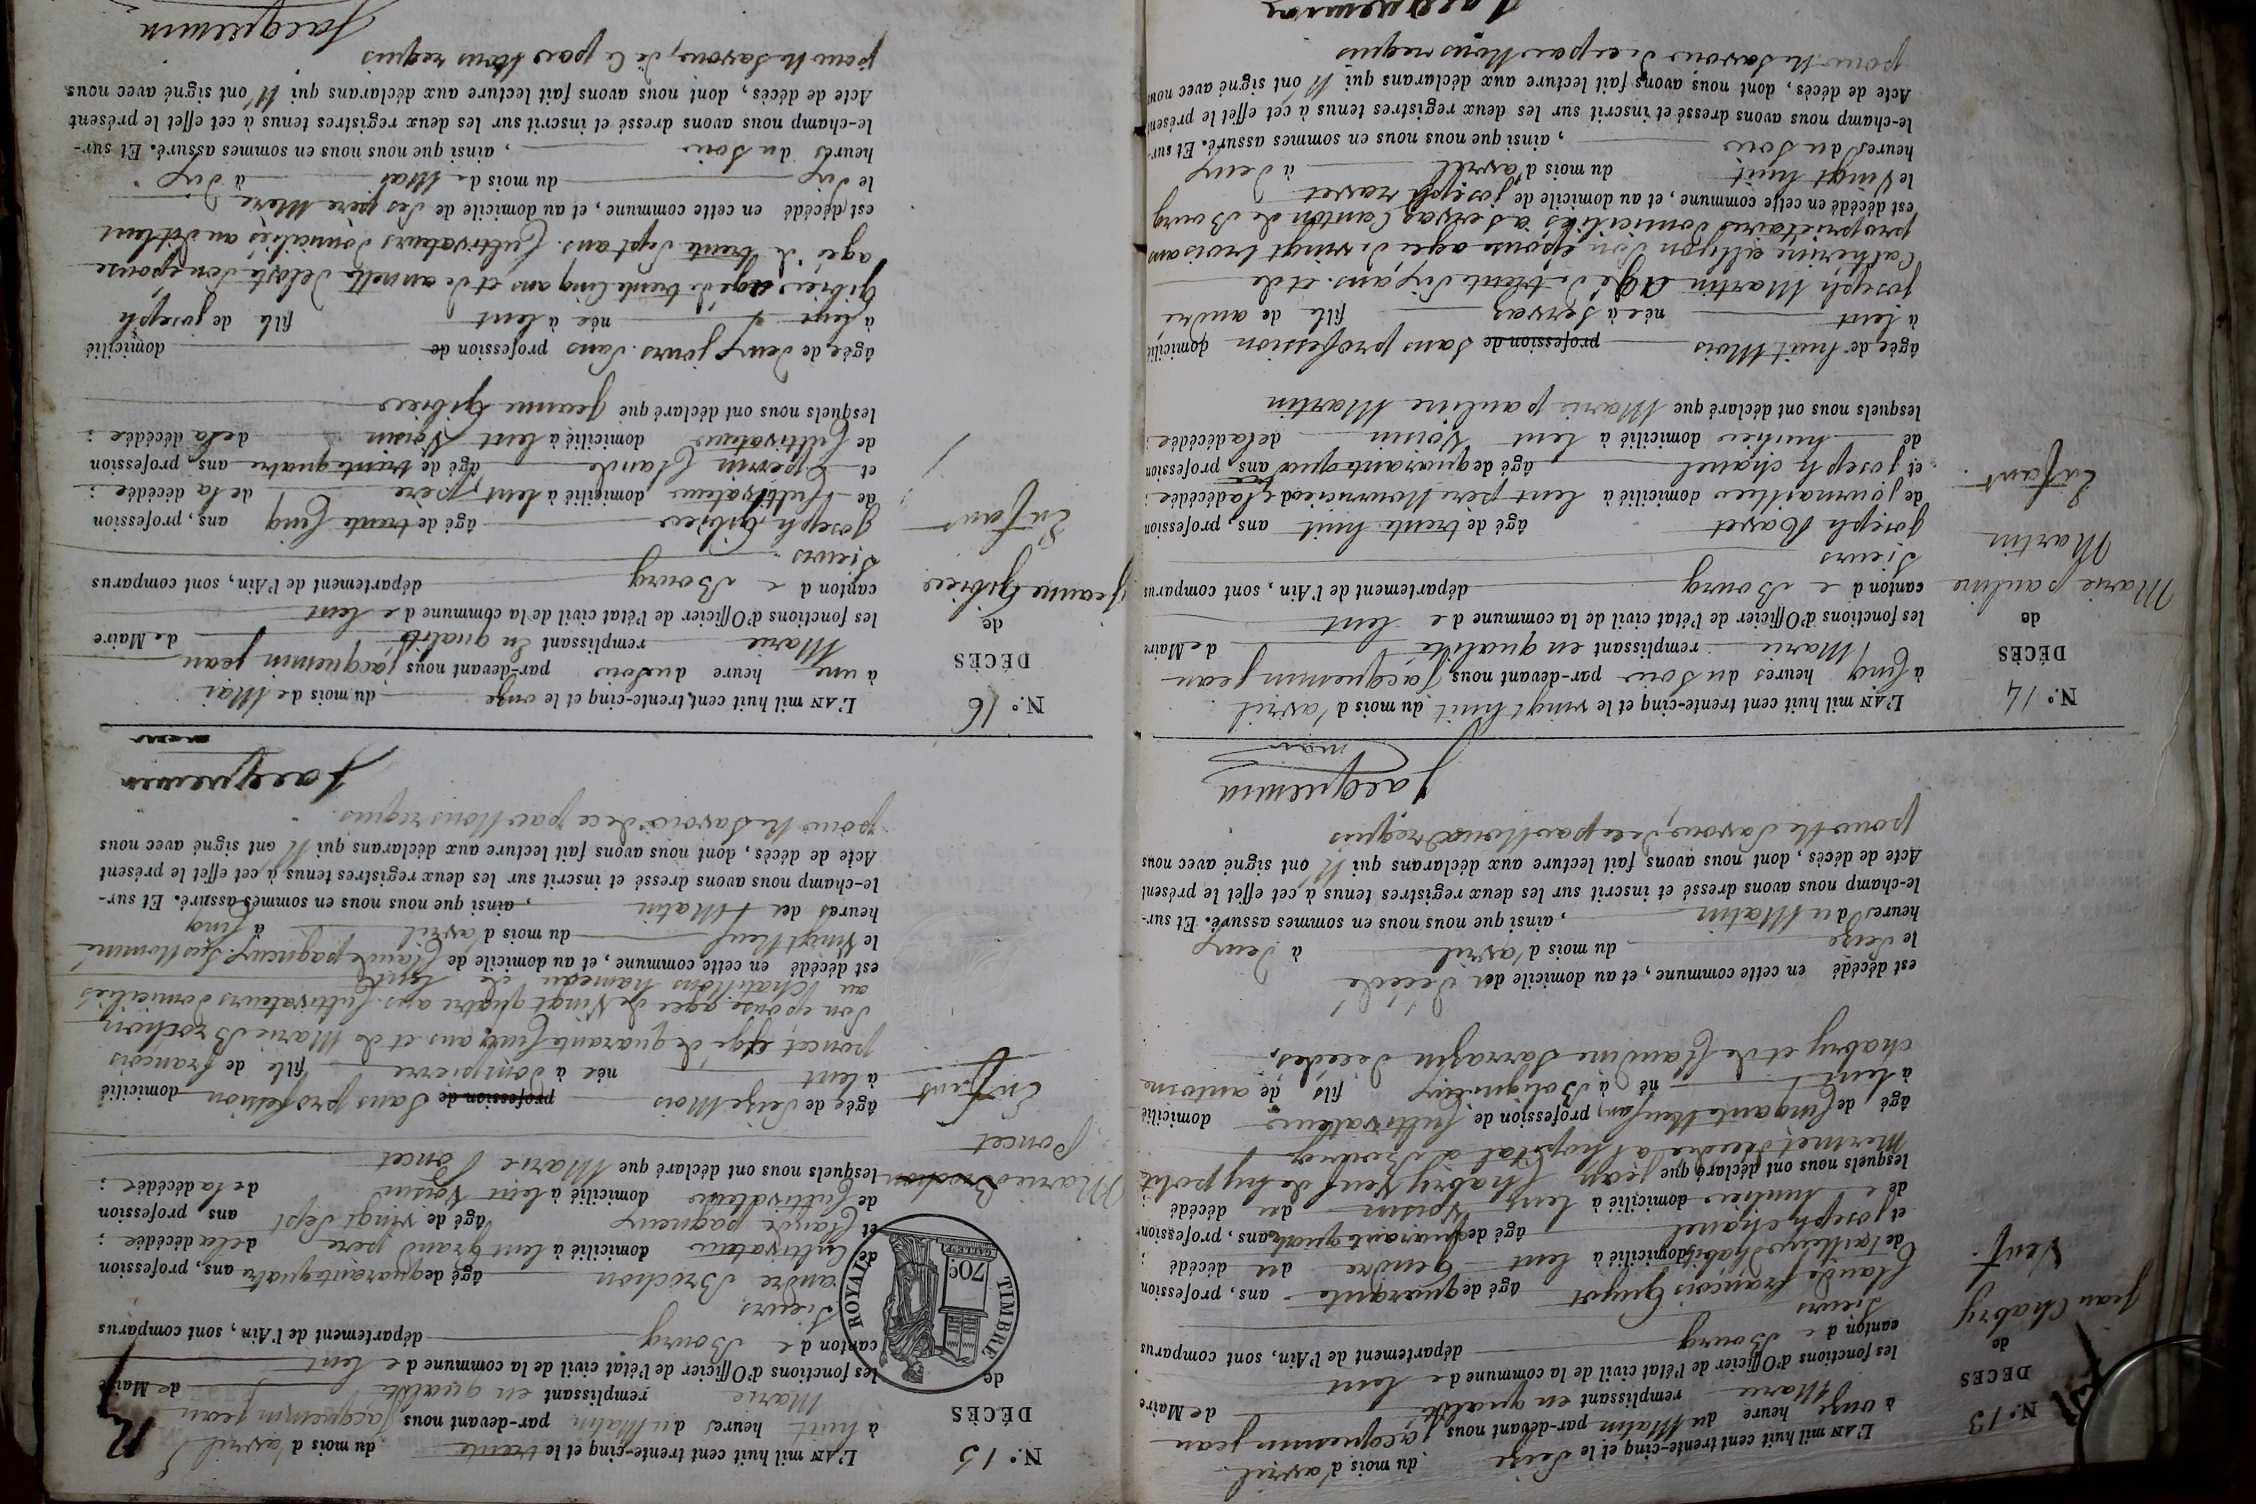 N.º 13
DÉCÈS
de
Jean Chabry
Veuf.
L'AN mil huit cent trent-cinq et le Seize du mois d'avril
à onze heure du Matin par-devant nous jacquemin jean
Marie remplissant en qualité de Maire
les fonctions d'Officier de l'état civil de la commune de lent
canton de Bourg département de l'Ain, sont comparus
Sieurs
Claude françois Guyot âgé de quarante ans, profession
de tailleur d'habits domicilié à lent Gendre du décédé ;
et joseph chanel âgé de quarante quatre ans, profession
de huilier domicilié à lent Voisin du décédé ;
lesquels nous ont déclaré que jean Chabry Veuf de hypolite
Mermet décédée a l'hopital a Bourg
âgé de Cinquante Neuf ans, profession de Cultivateur domicilié
à lent né à fils de antoine
chabry et de Claudine Sarrazin décédés.
est décédé en cette commune, et au domicile du décédé
le Seize du mois d'avril à deux
heures du Matin, ainsi que nous nous en sommes assuré. Et sur-
le-champ nous avons dressé et inscrit sur les deux registres tenus à cet effet le présent
Acte de décès, dont nous avons fait lecture aux déclarans qui N'ont signé avec nous
pour Ne Savoir, de ce par Nous requis
Jacquemin
maire
N.º 14
DÉCÈS
de
Marie pauline
Martin
Enfant
L'AN mil huit cent trent-cinq et le vingt huit du mois d'avril
à Cinq heures du Soir par-devant nous Jacquemin jean
Marie remplissant en qualité de Maire
les fonctions d'Officier de l'état civil de la commune de lent
canton de Bourg département de l'Ain, sont comparus
Sieurs
Joseph Ravet âgé de trente huit ans, profession
de journallier domicilié à lent père Nourricier de la décédée ;
et joseph chanel âgé de quarante quatre ans, profession
de huilier domicilié à lent Voisin de la décédée ;
lesquels nous ont déclaré que Marie pauline Martin
âgée de huit Mois profession de Sans profession domicilié
à lent née à Servas fille de andré
joseph Martin Agé de trente Six ans et de
Catherine allyon Son épouse agée de vingt trois ans
proprietaires domiciliés à Servas Canton de Bourg
est décédé en cette commune, et au domicile de joseph ravet
le Vingt huit du mois d'avril à deux
heures du Soir, ainsi que nous nous en sommes assuré. Et sur-
le-champ nous avons dressé et inscrit sur les deux registres tenus à cet effet le présent
Acte de décès, dont nous avons fait lecture aux déclarans qui N'ont signé avec nous
pour Ne Savoir de ce par Nous requis
Jacquemin
N.º 15
DÉCÈS
de
Marie Brochon
poncet
Enfant
TIMBRE ROYAL
70c
L'AN mil huit cent trent-cinq et le trente du mois d'avril
à huit heures du Matin par-devant nous Jacquemin jean
Marie remplissant en qualité de Maire
les fonctions d'Officier de l'état civil de la commune de lent
canton de Bourg département de l'Ain, sont comparus
Sieurs
andré Brochon âgé de quarante quatre ans, profession
de Cultivateur domicilié à lent Grand père de la décédée ;
et Claude pagneux âgé de vingt Sept ans profession
de Cultivateur domicilié à lent Voisin de la décédée ;
lesquels nous ont déclaré que Marie Poncet
âgée de Seize Mois profession de Sans profession domicilié
à lent née à dompierre fille de francois
poncet agé de quarante Cinq ans et de Marie Brochon
Son épouse agée de Vingt quatre ans Cultivateurs domiciliés
au Chatillons hameau de lent
est décédé en cette commune, et au domicile de Claude pagneux Susnommé
le Vingt Neuf du mois d'avril à Cinq
heures du Matin, ainsi que nous nous en sommes assuré. Et sur-
le-champ nous avons dressé et inscrit sur les deux registres tenus à cet effet le présent
Acte de décès, dont nous avons fait lecture aux déclarans qui N'ont signé avec nous
pour Ne Savoir de ce par Nous requis.
Jacquemin
maire
N.º 16
DÉCÈS
de
Jeanne Gibier
Enfant
L'AN mil huit cent trent-cinq et le onze du mois de Mai
à une heure du Soir par-devant nous jacquemin jean
Marie remplissant En qualité de Maire
les fonctions d'Officier de l'état civil de la commune de lent
canton de Bourg département de l'Ain, sont comparus
Sieurs
Joseph Gibier âgé de trente Cinq ans, profession
de Cultivateur domicilié à lent, père de la décédée ;
et Claude âgé de trente quatre ans, profession
de Cultivateur domicilié à lent Voisin de la décédée ;
lesquels nous ont déclaré que Jeanne Gibier
âgée de deux jours Sans profession de domicilié
à lent née à lent fille de joseph
Gibier agé de trente Cinq ans et de annette Son épouse
agé de trente Sept ans Cultivateurs domiciliés au dit lent
est décédé en cette commune, et au domicile de Ses père Mère
le dix du mois de Mai à dix
heures du Soir, ainsi que nous nous en sommes assuré. Et sur-
le-champ nous avons dressé et inscrit sur les deux registres tenus à cet effet le présent
Acte de décès, dont nous avons fait lecture aux déclarans qui N'ont signé avec nous
pour Ne Savoir, de Ce par Nous requis
Jacquemin